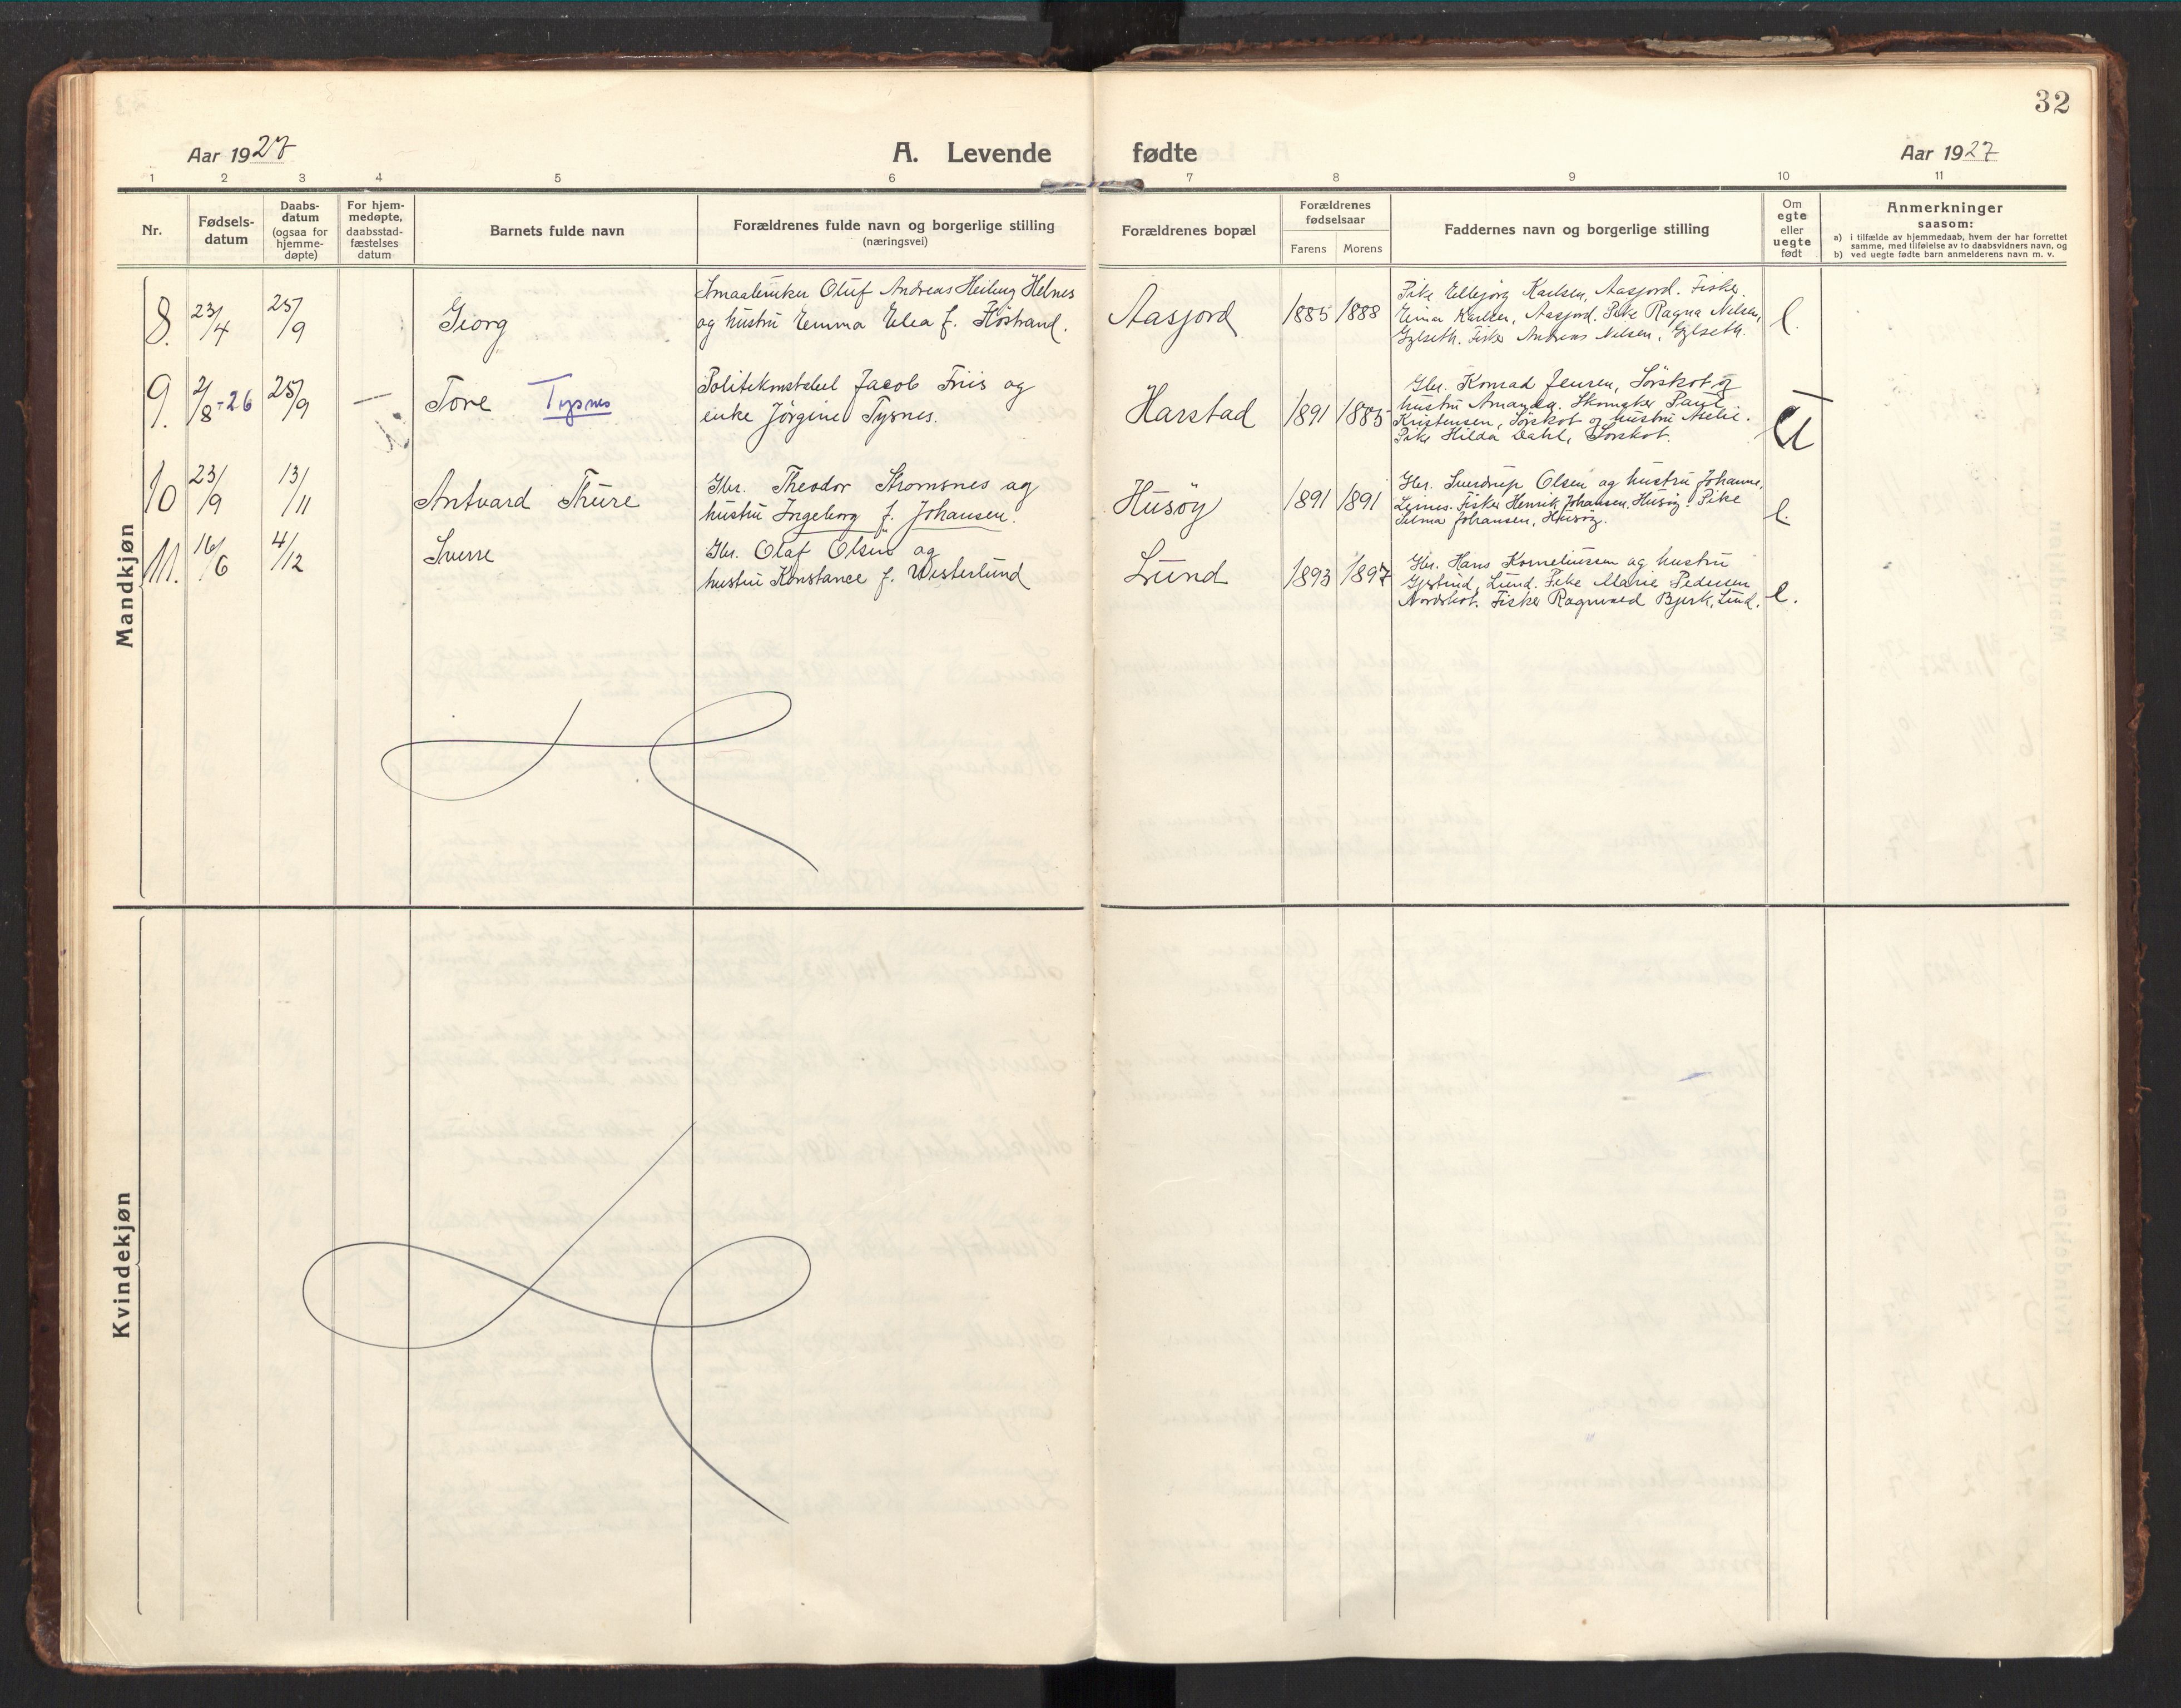 32
Aar 1927
A. Levende fødte
Aar 1927
1 2 3 4 5 6 7 8 9 10 11
Nr.
Fødsels-
datum
Daabs-
datum
(ogsaa for
hjemme-
døpte)
For hjem-
medøpte,
daabsstad-
fæstelses
datum
Barnets fulde navn
Forældrenes fulde navn og borgerlige stilling
(næringsvei)
Forældrenes bopæl
Forældrenes
fødselsaar
Farens Morens
Faddernes navn og borgerlige stilling
Om
egte
eller
uegte
født
Anmerkninger
saasom:
a) i tilfælde av hjemmedaab, hvem der har forrettet
samme, med tilføielse av to daabsvidners navn, og
b) ved uegte fødte barn anmelderens navn m. v.
Mandkjøn
8. 23/4 25/9
Georg
Smaabruker Oluf Andreas Helnes
og hustru Emma Elea f.
Aasjord
1885 1888
Pike Ellbjørg Karlsen, Aasjord. Fisker
Einar Karlsen, Aasjord. Pike Ragna Nilsen,
Gylseth. Fisker Andreas Nilsen, Gylseth.
e.
9. 2/8-26 25/9 —
Tore Tysnes
Politikonstabel Jacob Friis og
enke Jörgine Tysnes.
Harstad
1891 1885
Gbr. Konrad Jensen, Sörskot og
hustru Amanda. Skomaker Paul
Kristensen, Sörskot og hustru
Pike Hilda Dahl, Sörskot.
U
10 23/9 13/11
Antvard Thure
Gbr. Theodor Stromsnes og
hustru Ingeborg f. Johansen.
Husöy
1891 1891
Gbr. Sverdrup Olsen og hustru Johanne,
Leines. Fisker Henrik Johansen, Husöy. Pike
Selma Johansen, Husöy.
e.
11. 16/6 4/12
Sverre
Gbr. Olaf Olsen og
hustru Konstance f. Westerlund
Lund
1893 1897
Gbr. Hans Korneliussen og hustru
Gjertrud, Lund. Pike Marie Pedersen
Nordskot. Fisker Ragnvald Bjerk, Lund.
e.
Kvindekjøn